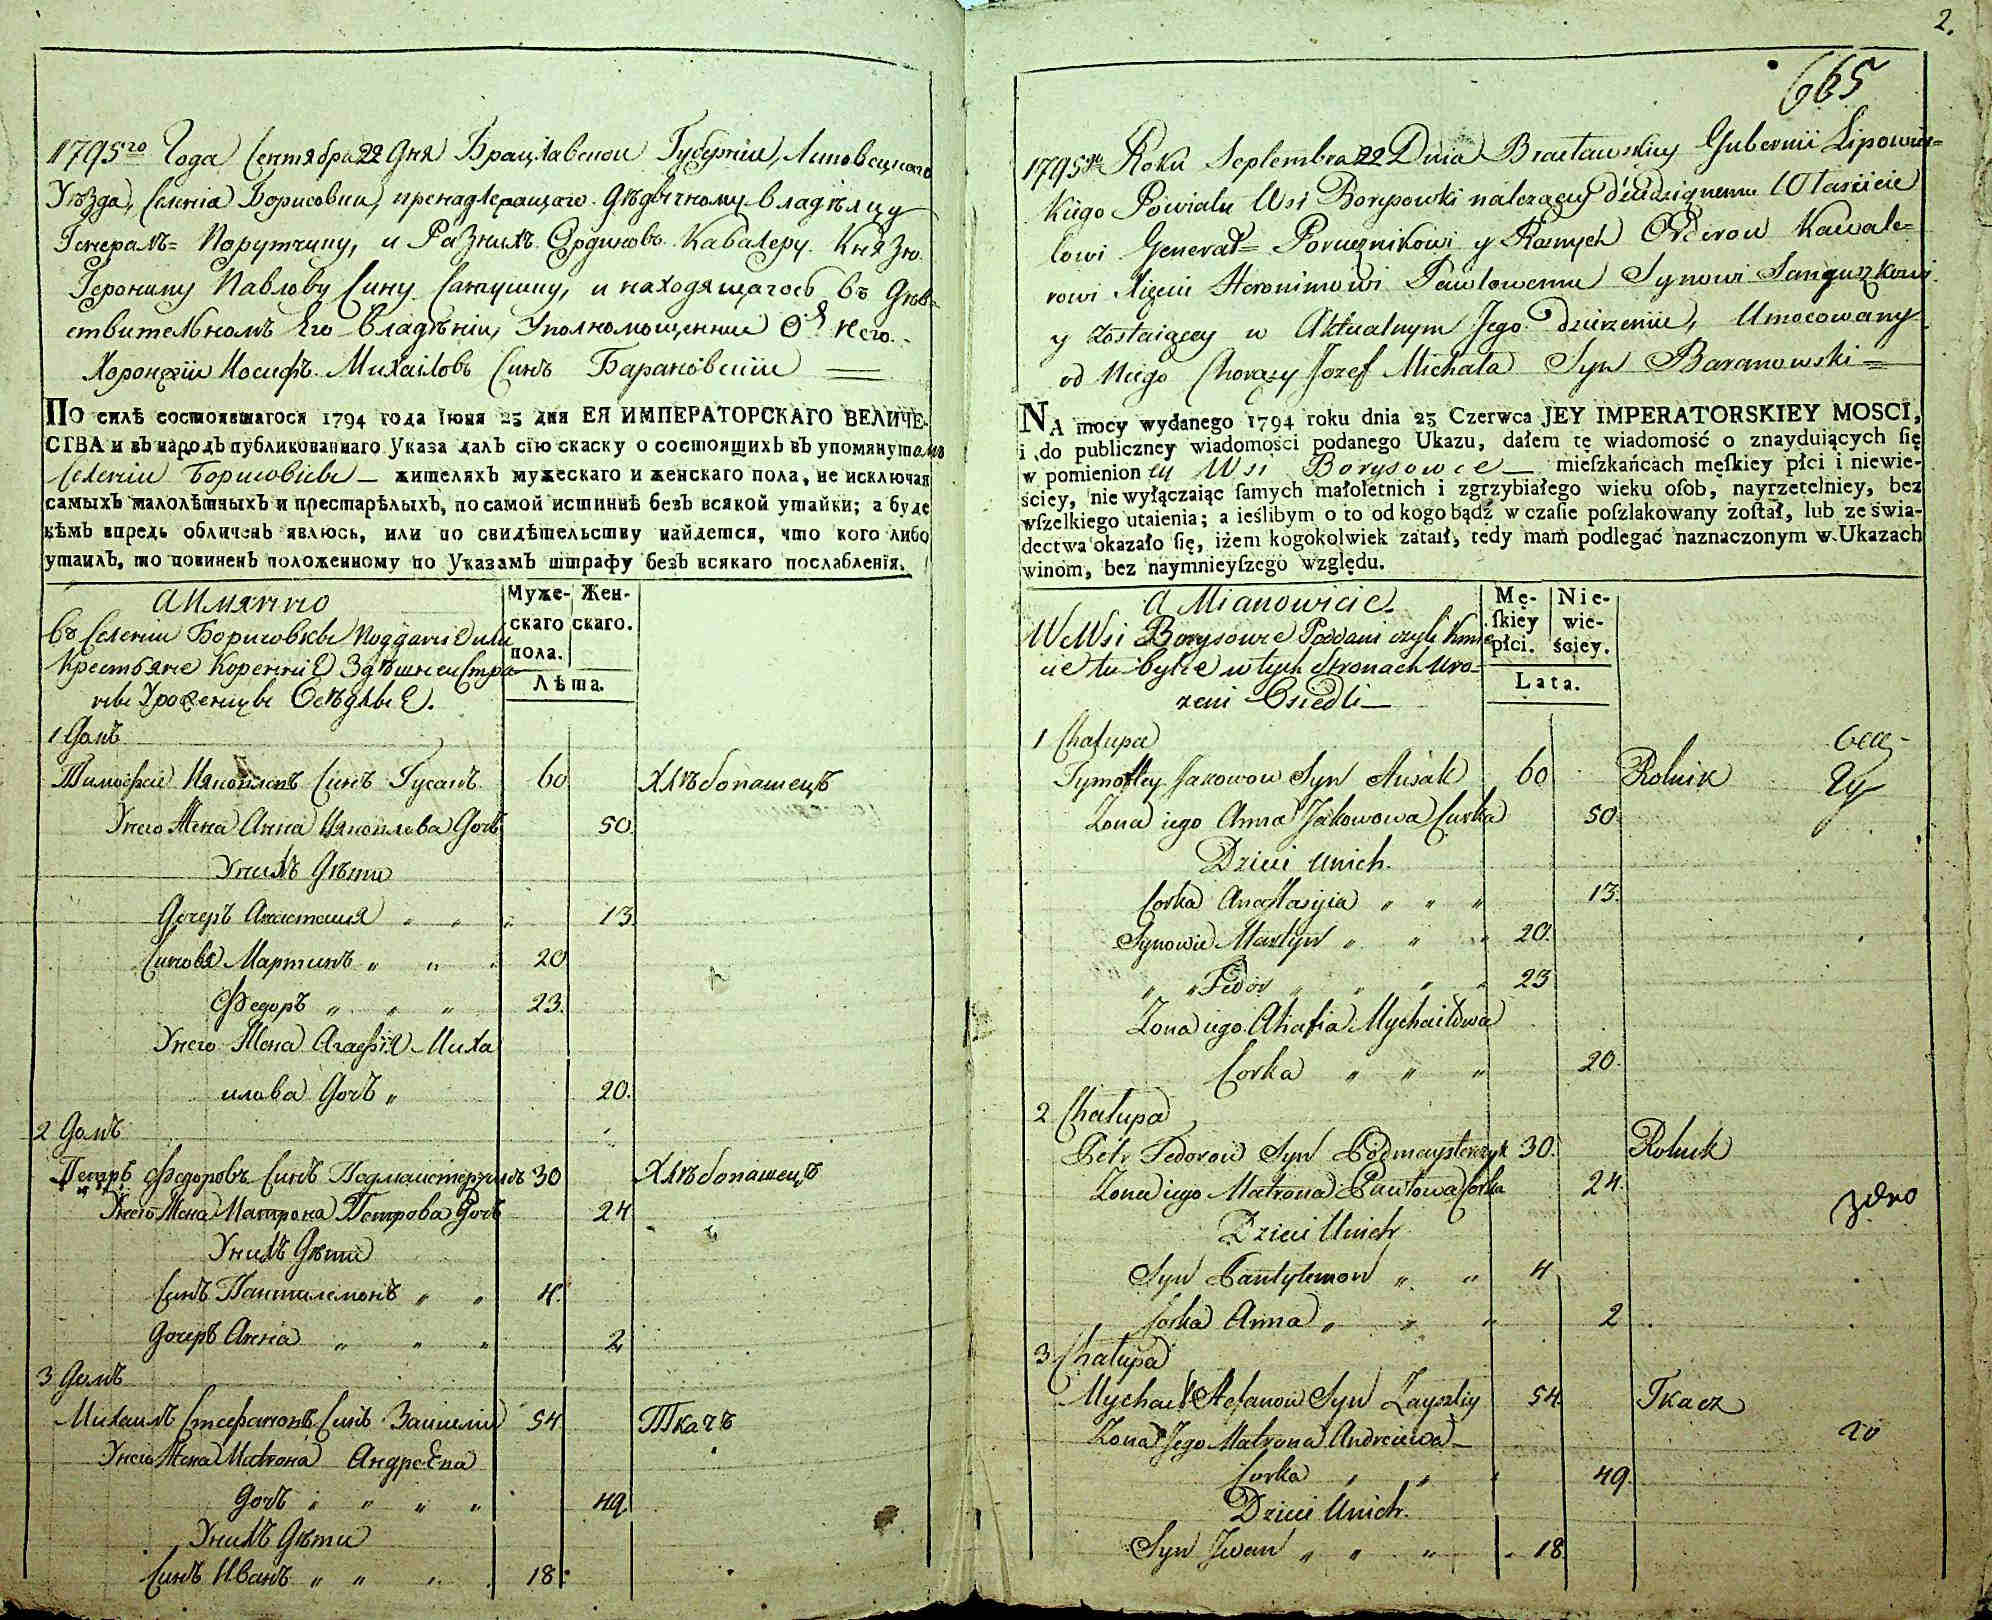 1795го Года Сентября 22 Дня Брацлавской Губерніи, Липовецкаго
Уѣзда, Селенія Борисовки, пренадлежащаго Дѣдичному владѣлцу
Генералъ= Порутчику, и Разнихъ Ординовъ Кавалеру Князю
Герониму Павлову Сину Сангушку, и находящагось въ Дѣв=
ствительномъ Его владѣніи, Уполномощенние Отъ Него
Хоронжій Иосифъ Михайловъ Синъ Барановскій
По силѣ состоявшагося 1794 года Іюня 23 дня ЕЯ ИМПЕРАТОРСКАГО ВЕЛИЧЕ-
СТВА и въ народъ публикованнаго Указа далъ сію скаску о состоящихъ въ упомянутомъ
Селеніи Борисовкѣ — жителяхъ мужескаго и женскаго пола, не исключая
самыхъ малолѣтныхъ и престарѣлыхъ, по самой истиннѣ безъ всякой утайки; а буде
кѣмъ впредь обличенъ явлюсь, или по свидѣтельству найдется, что кого либо
утаилъ, то повиненъ положенному по Указамъ штрафу безъ всякаго послабленія.
А Имянно
Въ Селеніи Борисовкѣ Поддание или
Крестьяне Коренніе Здѣшнеи Стра
нѣ Уроженцѣ Осѣдлѣе.
Муже-
скаго
пола.
Жен-
скаго.
Лѣта.
1 Домъ
Тимофей Яковлевъ Синъ Гусакъ 60 Хлѣбопашецъ
У него Жена Анна Яковлева Дочь 50
У нихъ Дѣти
Дочеръ Анастасия " " " 13
Синовя Мартинъ " " 20
Федоръ " " " 23.
У него Жена Агафія Миха
илова Дочь " 20.
2 Домъ
Петръ Федоровъ Синъ Падмаистерчукъ 30 Хлѣбопашецъ
У него Жена Матрона Петрова Дочь 24
У нихъ Дѣти
Синъ Пантилемонъ " " 4.
Дочеръ Анна " " " 2
3 Домъ
Михаилъ Стефановъ Синъ Зайшлий 54 Ткачъ
У него Жена Матрона Андреева
Дочь " " " " 49.
У нихъ Дѣти
Синъ Иванъ " " 18
2.
665
1795go Roku Septembra 22 Dnia Bracławskiey Gubernii Lipowiec=
kiego Powiatu Wsi Borysowki należącey dziedzicznemu Właścicie
lowi Generał= Porucznikowi y Roznych Orderow Kawale=
rowi Xięciu Heronimowi Pawłowemu Synowi Sanguszkowi
y zostaiącey w Aktualnym Jego dzierzeniu, Umocowany
od Niego Chorąży Jozef Michała Syn Baranowski=
NA mocy wydanego 1794 roku dnia 23 Czerwca JEY IMPERATORSKIEY MOSCI,
i do publiczney wiadomości podanego Ukazu, dałem tę wiadomość o znayduiących się
w pomienion ey Wsi Borysowce — mieſzkańcach męſkiey płci i niewie-
ściey, nie wyłączaiąc ſamych małoletnich i zgrzybiałego wieku oſob, nayrzetelniey, bez
wſzelkiego utaienia; a ieślibym o to od kogo bądź w czaſie poſzlakowany zoſtał, lub ze świa-
dectwa okazało ſię, iżem kogokolwiek zataił, tedy mam podlegać naznaczonym w Ukazach
winom, bez naymnieyſzego względu.
A Mianowicie.
We Wsi Borysowce Poddani czyli Kmie
cie tu bylce w tych Stronach Uro-
zeni Osiedli—
Mę-
ſkiey
płci.
Nie-
wie-
ściey.
Lata.
1 Chałupa
Tymofiey Jakowow Syn Husak 60 Rolnik
Zona iego Anna Jakowowa Curka 50
Dzieci Unich.
Corka Anastasyia " " " 13.
Synowie Martyn " " " 20.
" " Fedor " " " " 23
Zona iego Ahafia Mychaiłowa
Corka " " " 20.
2 Chałupa
Petr Fedorow Syn Podmaysterczyk 30. Rolnik
Zona iego Matrona Pawłowa Corka 24.
Dzieci Unich
Syn Pantylemon " " 4
Corka Anna " " " 2
3 Chałupa
Mychaił Stefanow Syn Zayszliy 54. Tkacz
Zona Jego Matrona Andreiewa—
Corka " " " 49.
Dzieci Unich.
Syn Jwan " " " 18